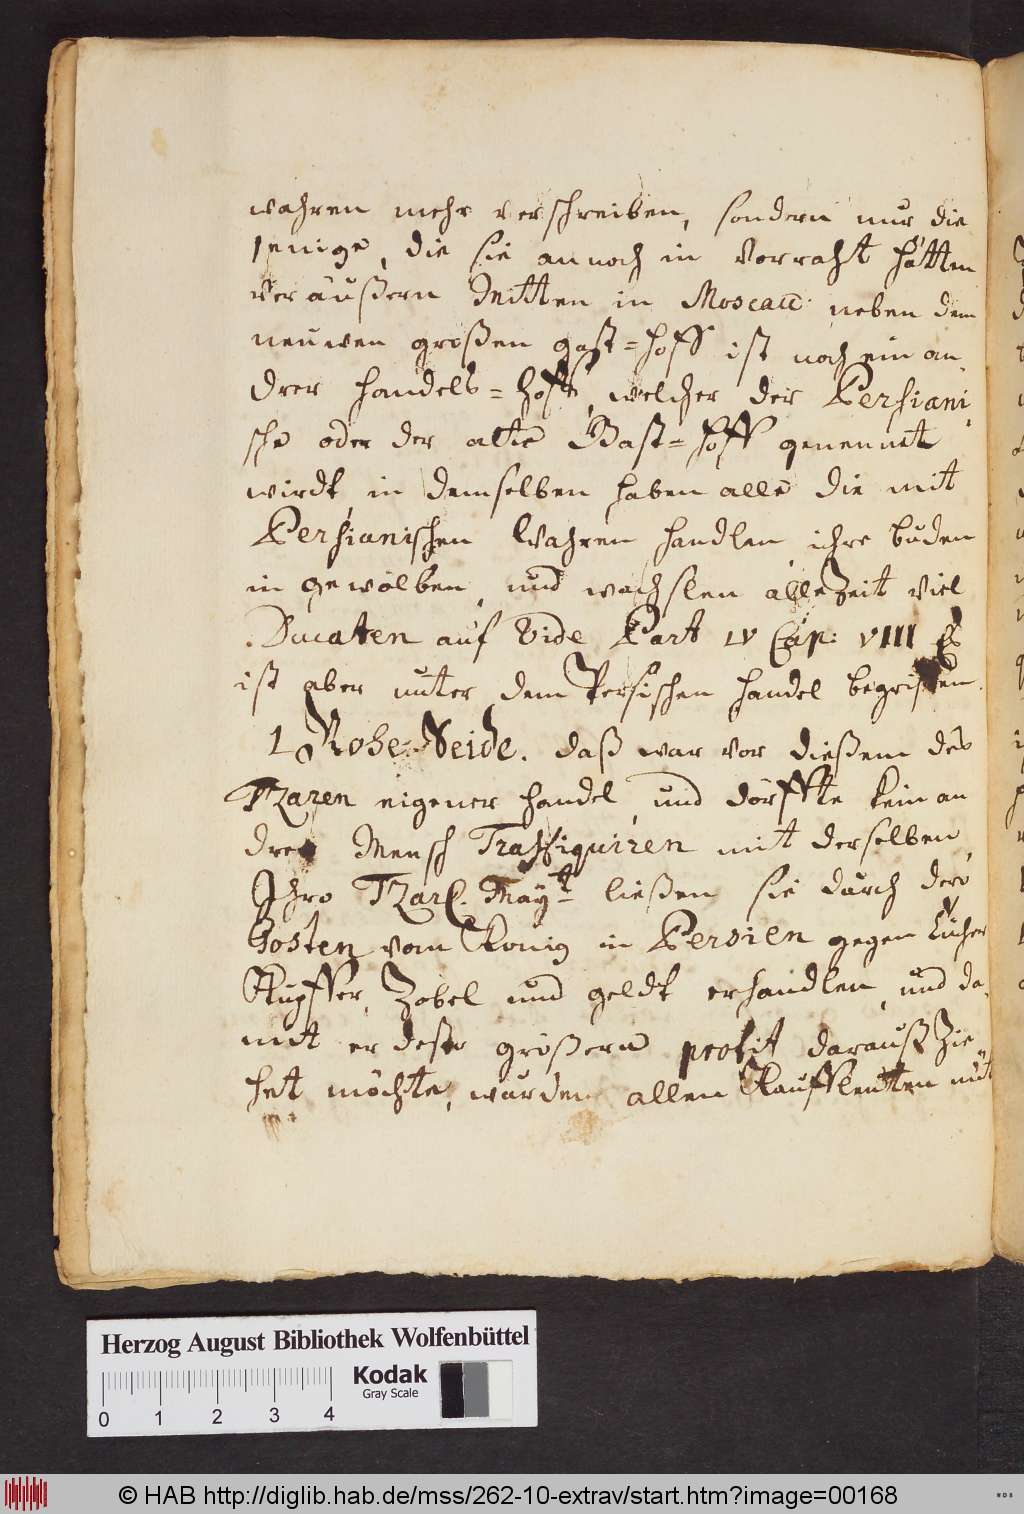 wahren mehr verschreiben, sondern nur die
jenige, die sie annoch in Vorraht hätten
veräußern Mitten in Moscau neben dem
neuwen großen gast=hoff ist noch ein an
drer handels=hoff, welcher der Persiani
sche oder der alte Gast=hoff genennet
wirdt, in demselben haben alle die mit
Persianischen Wahren handlen ihre buden
in gewölben, und wechslen alleZeit viel
Ducaten auf Vide Part IV Cap: VIII Es
ist aber unter dem Persischen handel begriffen
1 Rohe-Seide. daß war vor dießem des
Tzaren eigener handel, und dörffte kein an
drer Mensch Traffiquiren mit derselben,
Ihro Tzarl. Mayt ließen sie durch dero
Gosten vom König in Persien gegen tücher
Kupffer, Zobel und geldt erhandlen, und da
mit er desto größern profit darauß Zie
het möchte, wurden allen Kauffleutten mit
Herzog August Bibliothek Wolfenbüttel
Kodak
Gray Scale
0 1 2 3 4
© HAB http://diglib.hab.de/mss/262-10-extrav/start.htm?image=00168